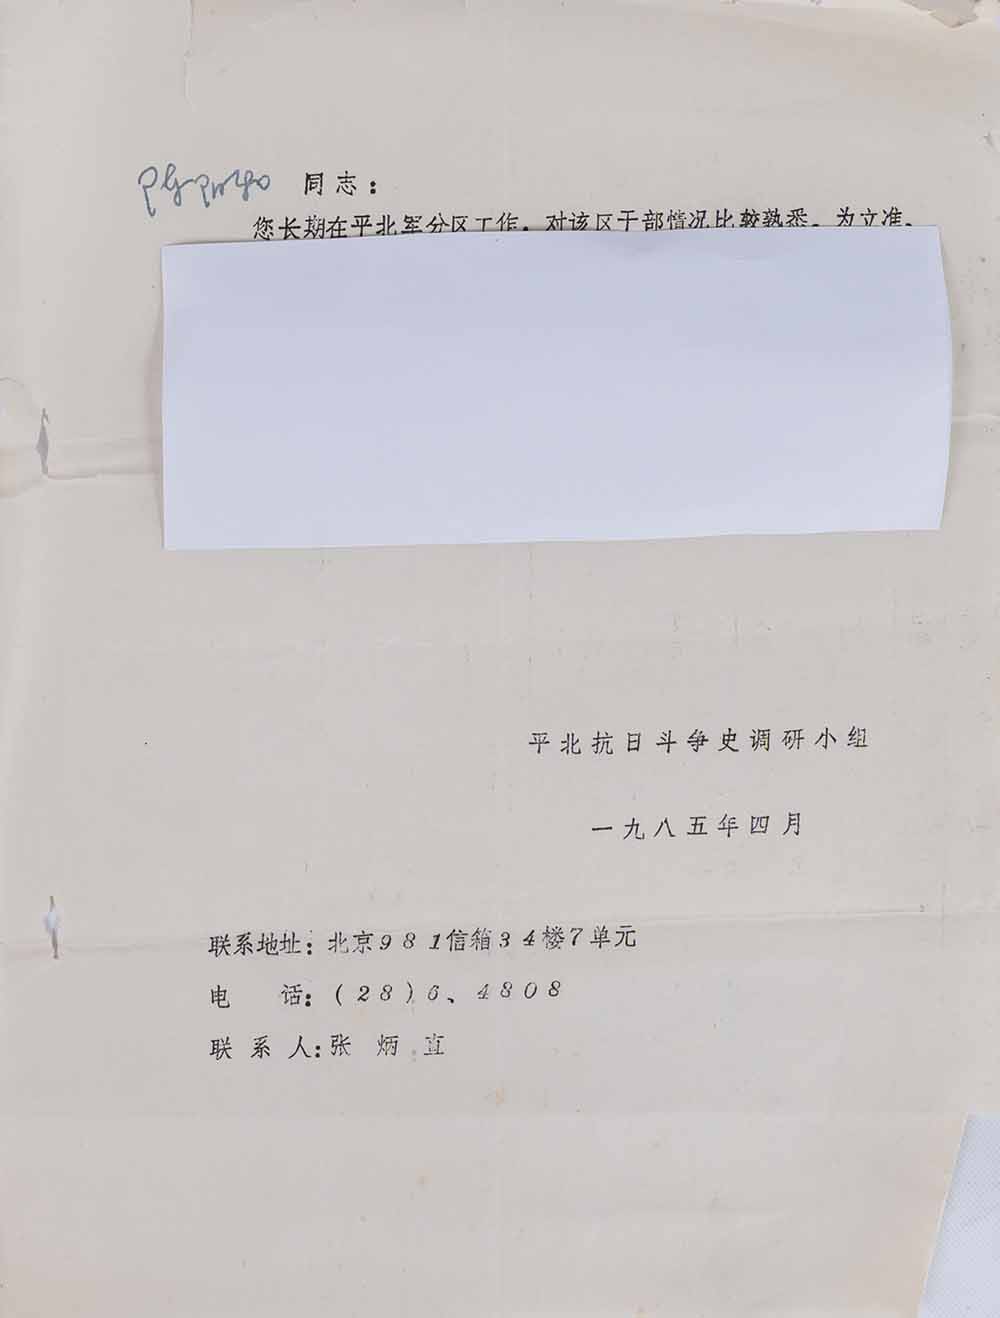 同志：
您长期在平北军分区工作，对该区干部情况比较熟悉。为立准、
平北抗日斗争史调研小组
一九八五年四月
联系地址：北京981信箱34楼7单元
电 话：(28)6、4808
联系人：张炳直